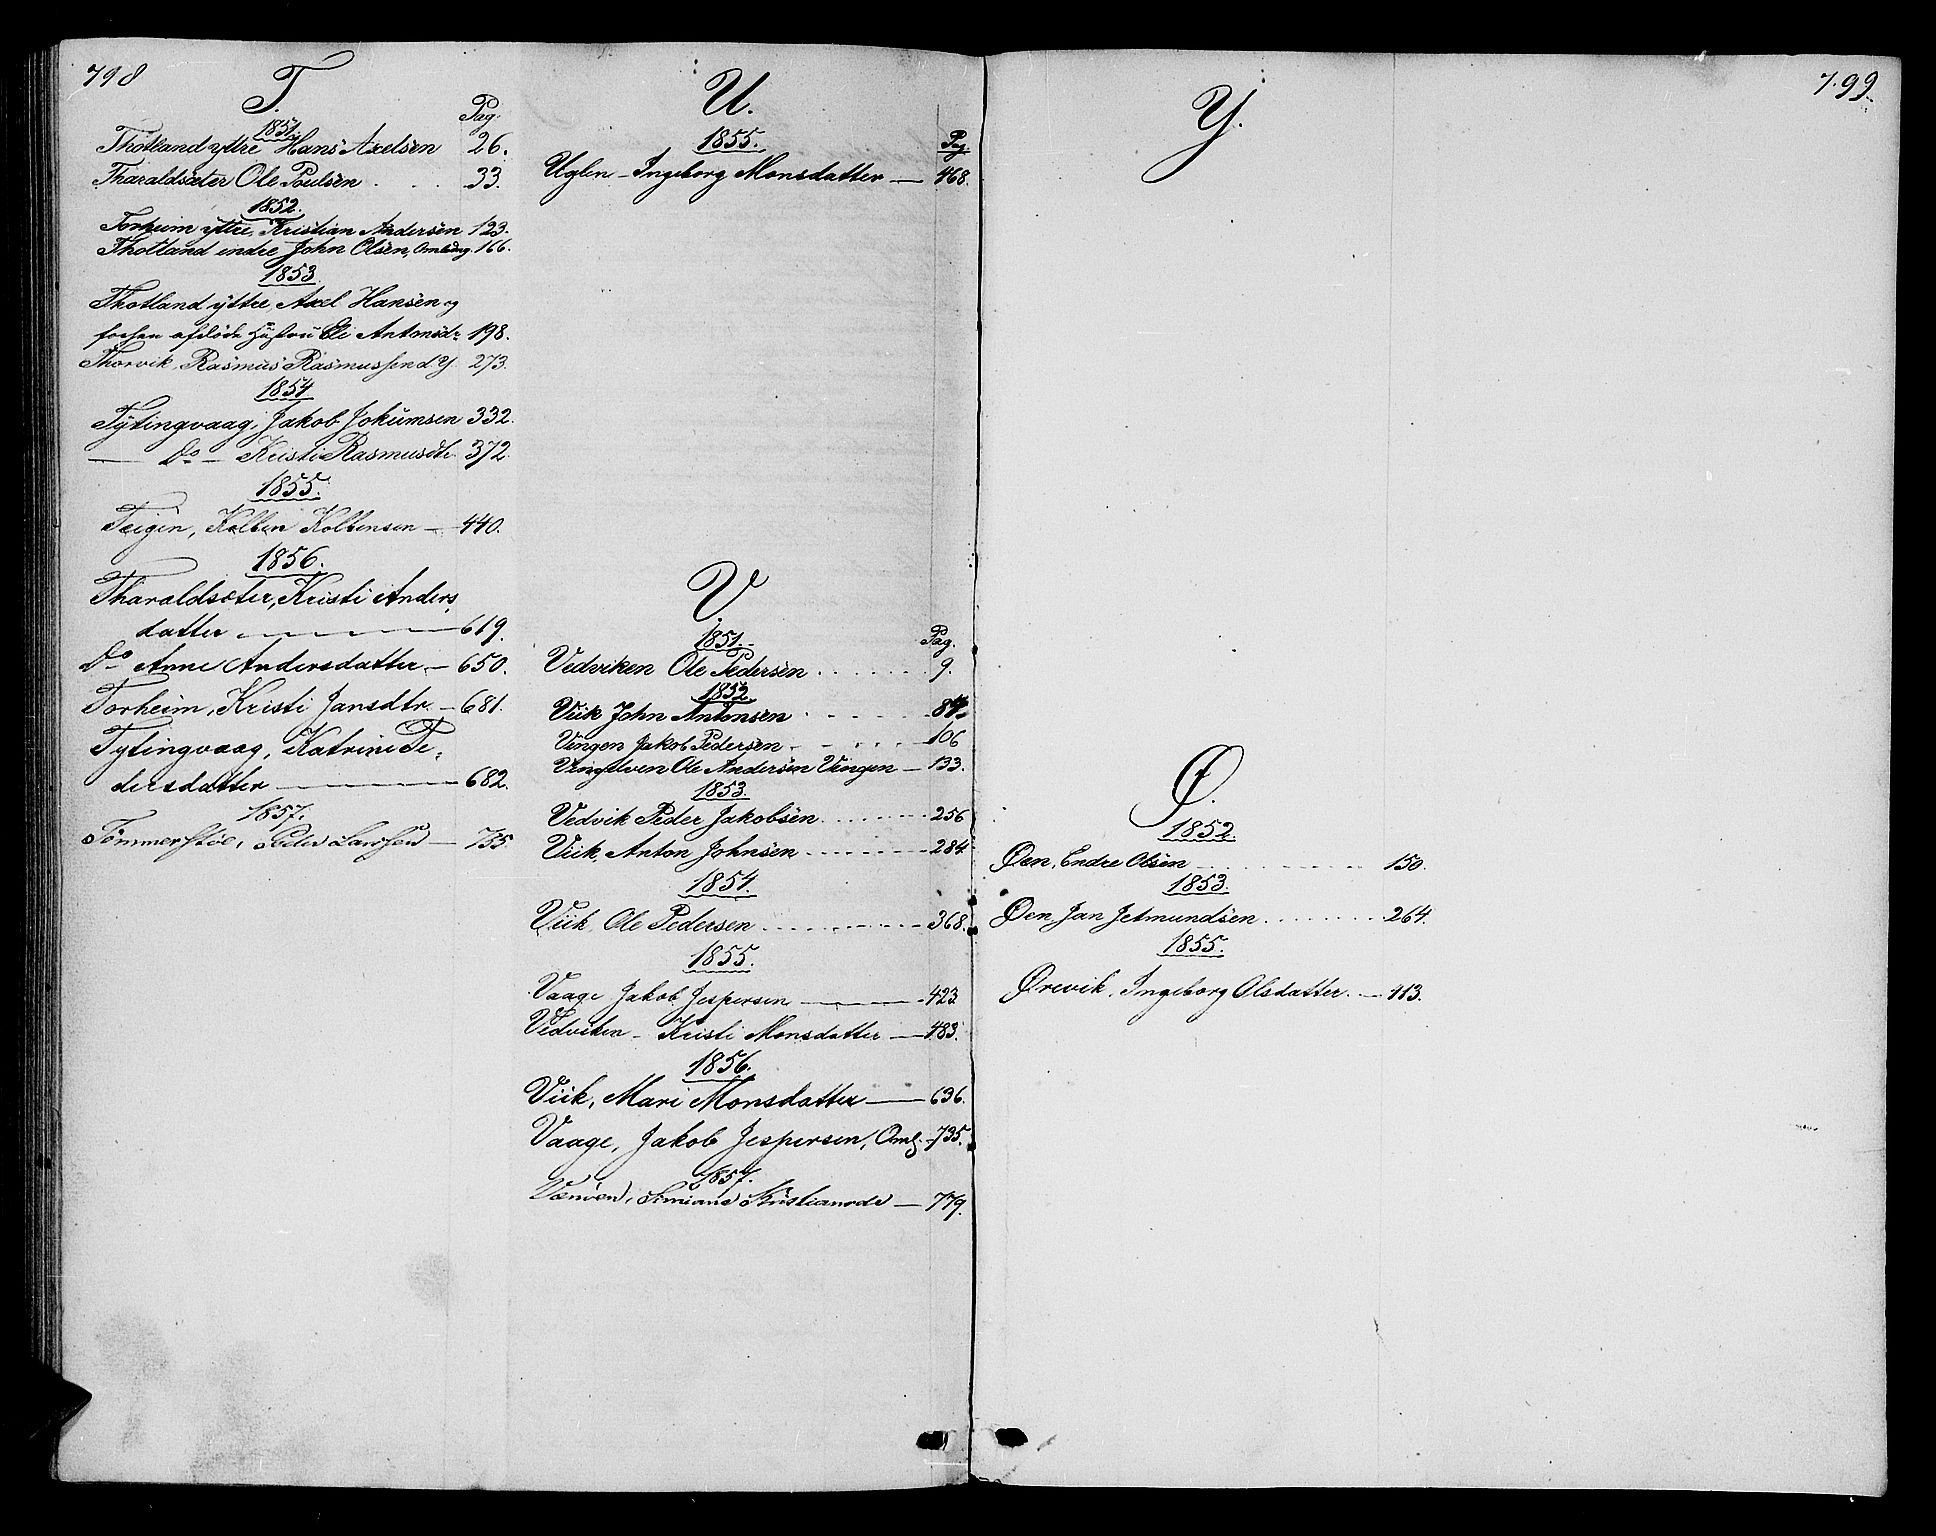 798
T.
Pag.
1851.
Thotland yttre Hans Axelsen 26.
Tharaldsæter Ole Poulsen . . . . 33.
1852.
Torheim yttre, Kristian Andersen 123.
Thotland indre John Olsen, Omløbg. 166.
1853.
Thotland yttre, Axel Hansen og
forhen afdøde Hustru Eli Antonsdr. 198.
Thorvik, Rasmus Rasmussen d.y. 273.
1854
Tytingvaag, Jakob Jokumsen 332.
— Do — Kristi Rasmusdtr. 372.
1855.
Teigen, Kolben Kolbensen — 440.
1856.
Tharaldsæter, Kristi Anders
datter — 619.
Do Anne Andersdatter — 650.
Torheim, Kristi Jansdtr. — 681.
Tytingvaag, Katrine Pe-
dersdatter — 682.
1857.
Tømmerstøe, Peder Larssen — 755
U.
1855.
Pag.
Uglen - Ingeborg Monsdatter — 468.
V.
1851.
Pag.
Vedviken Ole Pedersen . . . . . . 9.
1852
Viik John Antonsen . . . . . 84.
Vingen Jakob Pedersen . . . . 106
Vingelven Ole Andersen Vingen — 133.
1853.
Vedvik Peder Jakobsen . . . . . . 256
Viik, Anton Johnsen . . . . . . 284
1854.
Viik, Ole Pedersen . . . . . . . . 368.
1855.
Vaage Jakob Jespersen — 423
Vedviken - Kristi Monsdatter — 483.
1856.
Viik, Mari Monsdatter — 636.
Vaage, Jakob Jespersen, Oml. - 735.
1857.
Simiane Kristiansdr — 779.
7.99.
Y.
Ø.
1852.
Øen, Endre Olsen . . . . . . . . 150.
1853.
Øen, Jan Jetmundsen . . . . . . . 264.
1855.
Ørevik, Ingeborg Olsdatter. — 413.